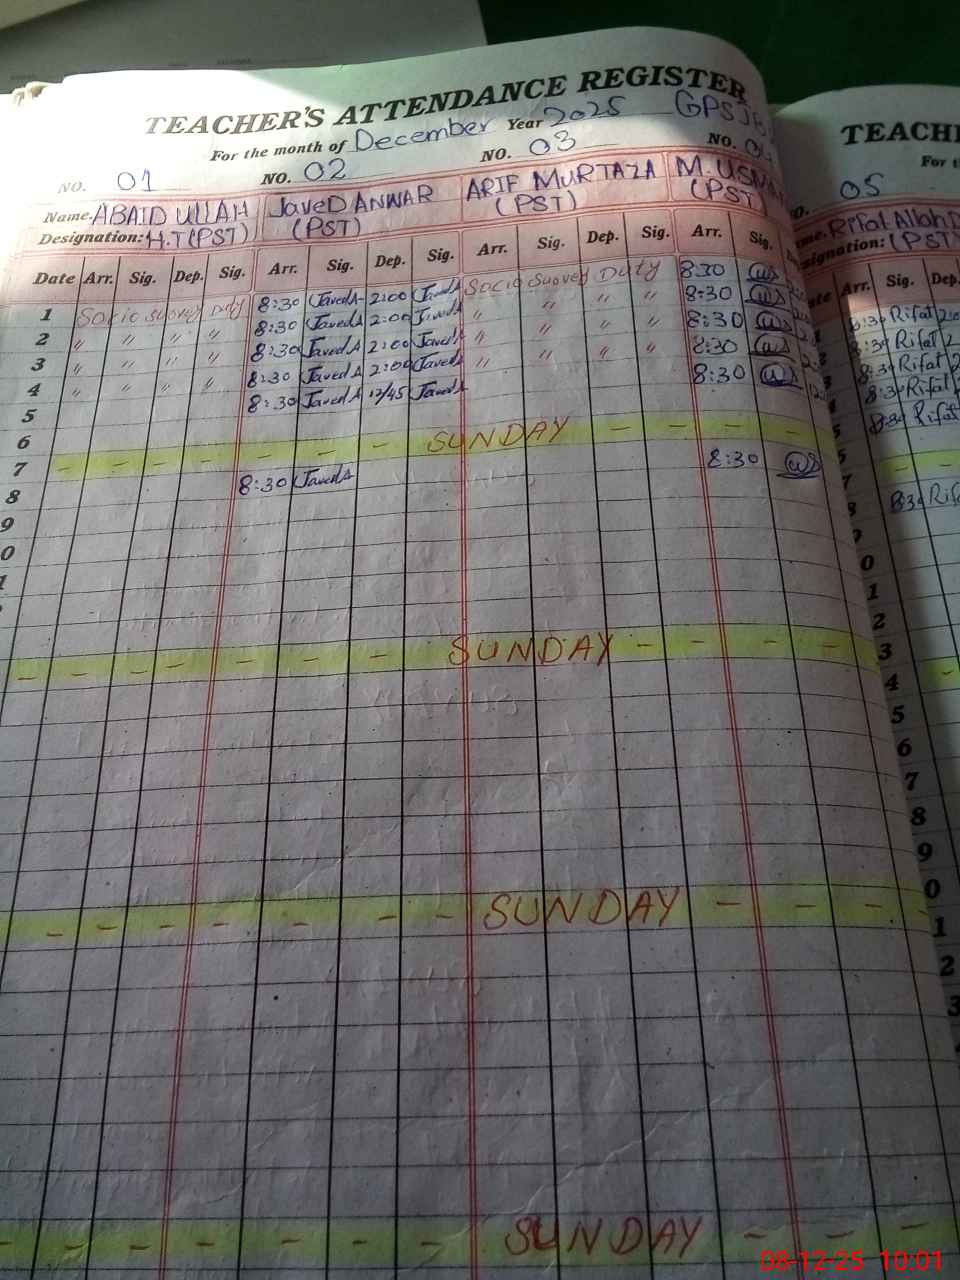 TEACHER'S ATTENDANCE REGISTER
For the month of December Year 2025 GPS JB
NO. 01 NO. 02 NO. 03 NO. 04
Name. ABAID ULLAH JaveD ANWAR ARIF MURTAZA M. USMA
Designation: H.T (PST) (PST) (PST) (PST)
Date Arr. Sig. Dep. Sig. Arr. Sig. Dep. Sig. Arr. Sig. Dep. Sig. Arr. Sig.
1 Socio Suovey Duty 8:30 JavedA 2:00 JavedA Socio Suovey Duty 8:30
2 " " " " 8:30 JavedA 2:00 JavedA " " " " 8:30
3 " " " " 8:30 JavedA 2:00 JavedA " " " " 8:30
4 " " " " 8:30 JavedA 2:00 JavedA " " " " 8:30
5 8:30 JavedA 12/45 JavedA 8:30
6
7 - - - - - - - SUNDAY - - - -
8 8:30 JavedA 8:30
9
0
1
- - - - - - SUNDAY - - - -
- - - - - - - SUNDAY - - - -
- - - - - - SUNDAY - - -
TEACHE
For t
05
Rifat Allah D
signation: (PST)
Arr. Sig. Dep.
8:30 Rifat 2:00
8:30 Rifat 2
8:30 Rifat 2
8:30 Rifat 2
8:30 Rifat
- -
8:30 Rifa
0
1
2
3
4
5
6
7
8
9
0
1
2
3
08-12-25 10:01